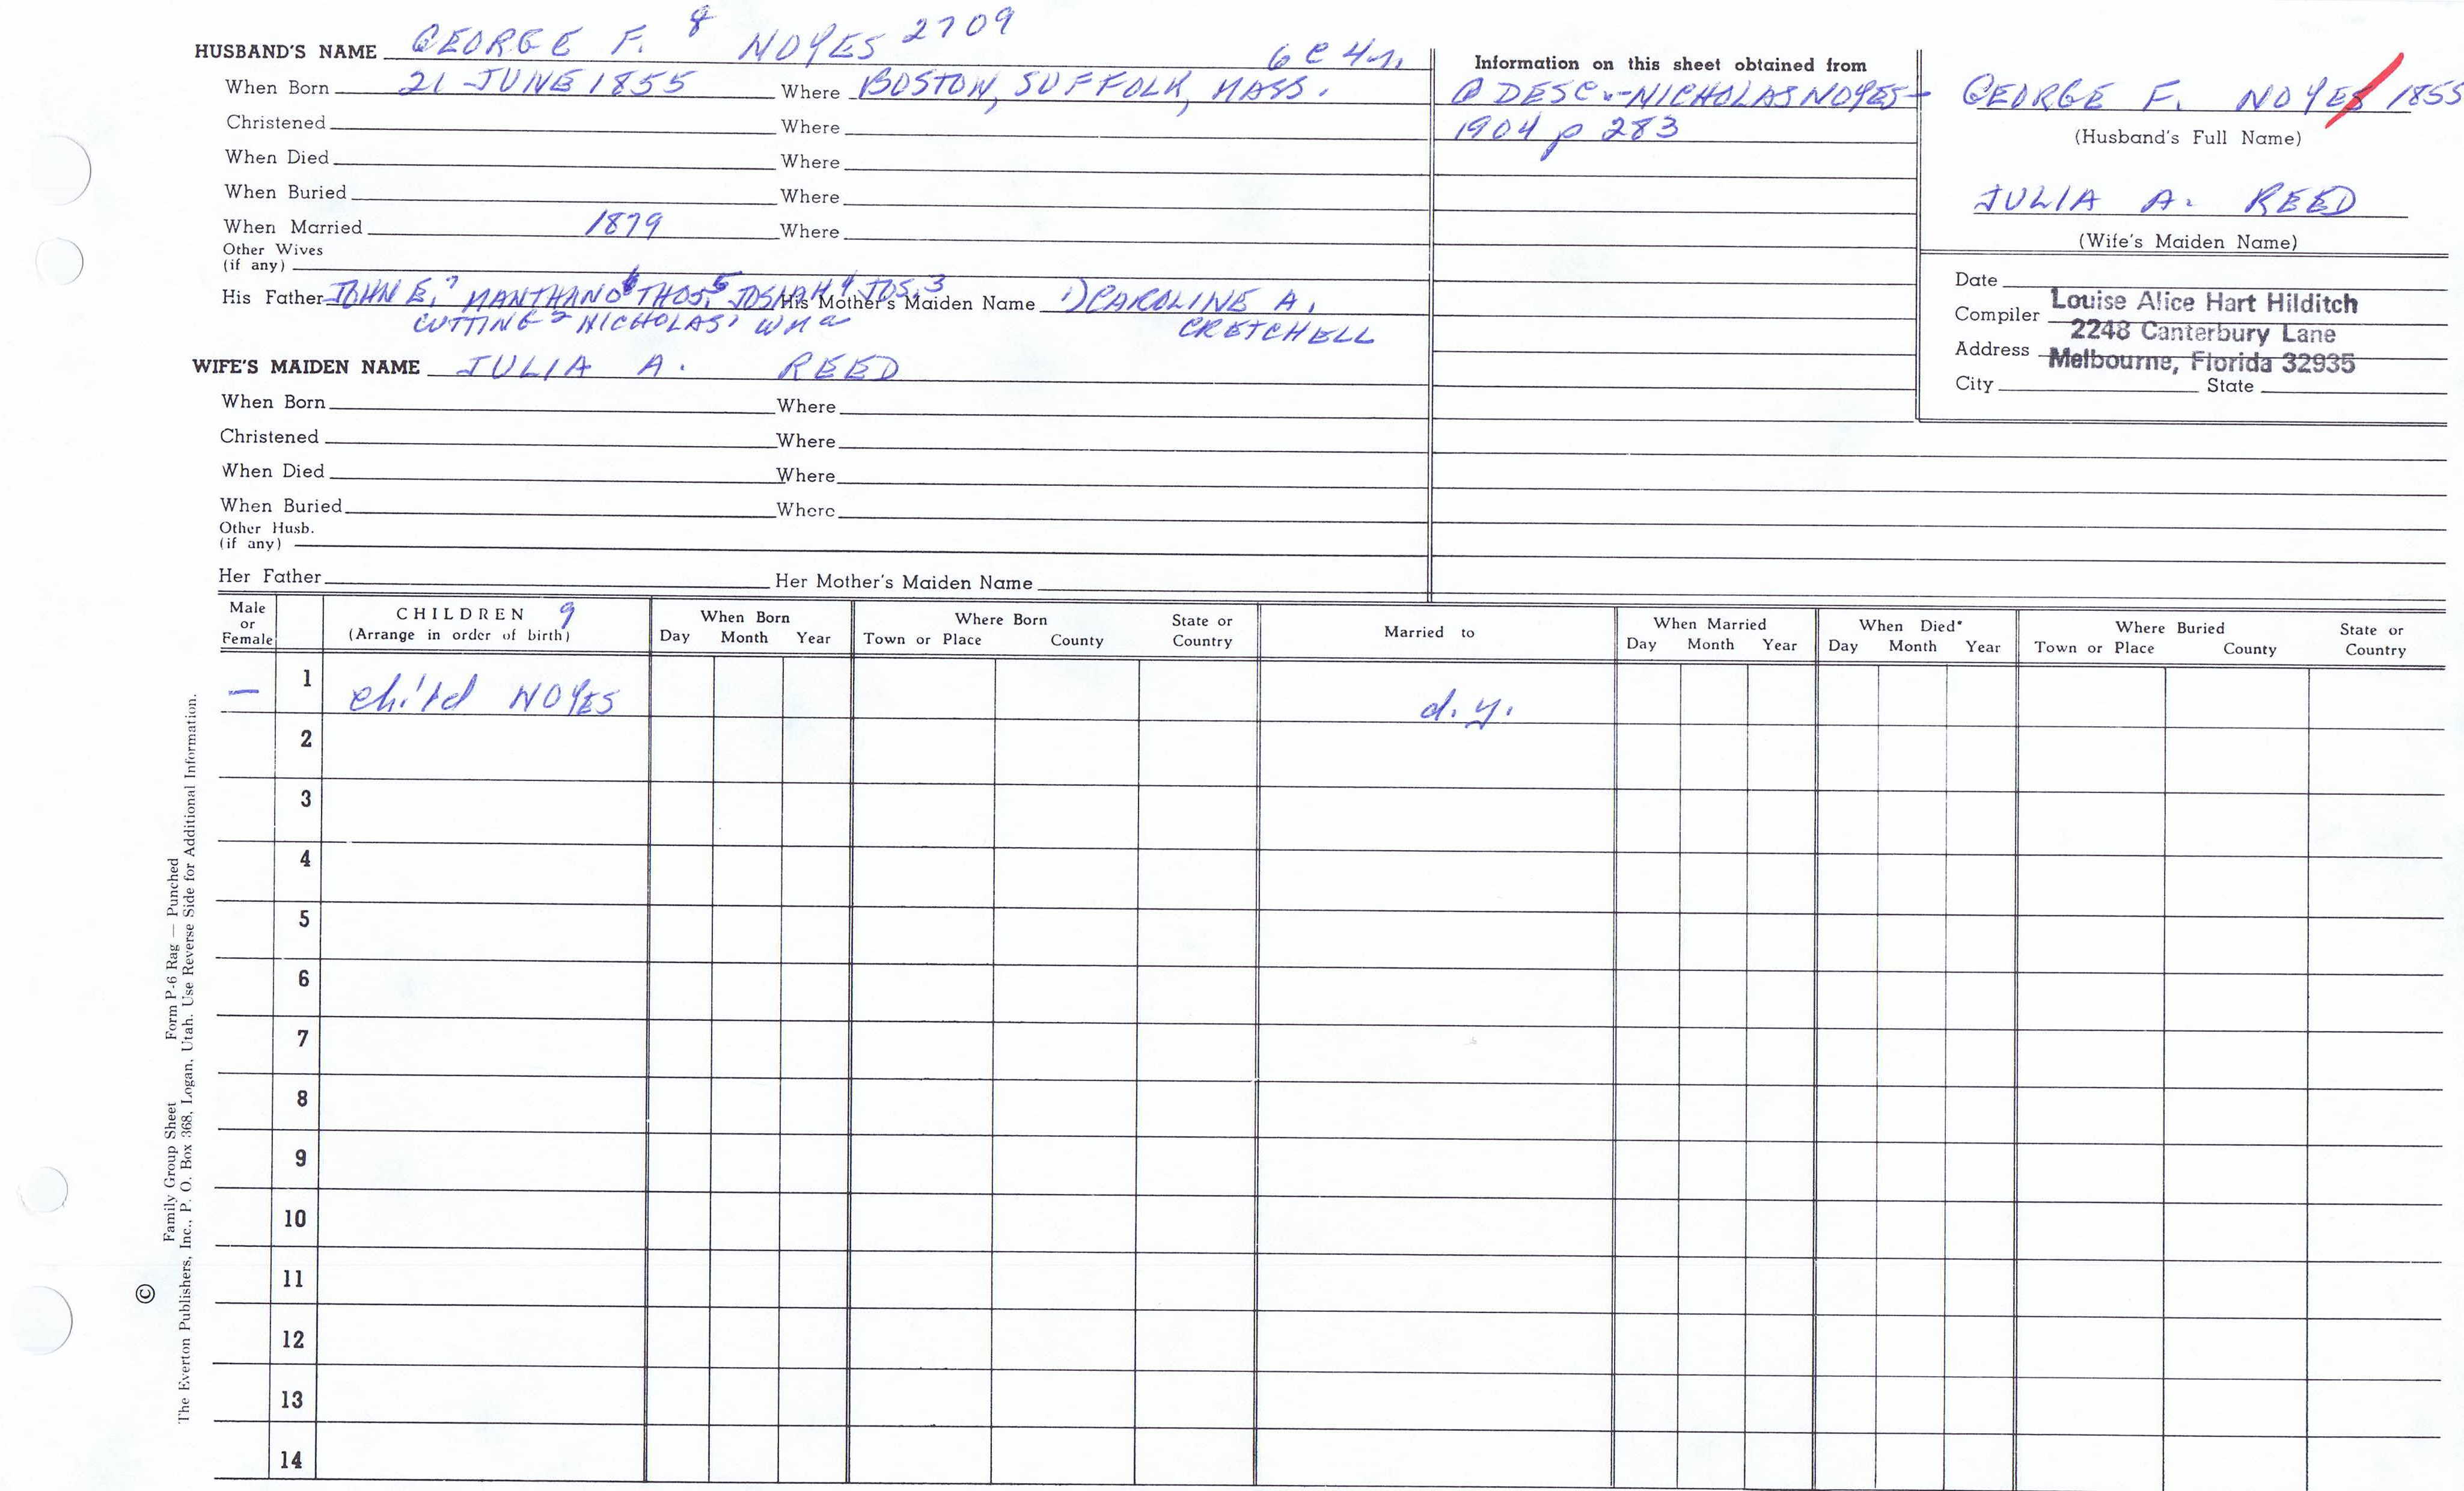 HUSBAND'S NAME GEORGE F. 8 NOYES 2709 6C4R.
When Born 21 JUNE 1855 Where BOSTON, SUFFOLK, MASS.
Christened Where
When Died Where
When Buried Where
When Married 1879 Where
Other Wives
(if any)
His Father JOHN E.7 NANTHAN6 THOS.5 JOSIAH4 JOS.3 His Mother's Maiden Name 1) CAROLINE A.
CUTTING2 NICHOLAS1 WM CRETCHELL
WIFE'S MAIDEN NAME JULIA A. REED
When Born Where
Christened Where
When Died Where
When Buried Where
Other Husb.
(if any)
Her Father Her Mother's Maiden Name
Information on this sheet obtained from
DESC.-NICHOLAS NOYES-
1904 p 283
GEORGE F. NOYES 1855
(Husband's Full Name)
JULIA A. REED
(Wife's Maiden Name)
Date
Compiler Louise Alice Hart Hilditch
2248 Canterbury Lane
Address Melbourne, Florida 32935
City State
Male or Female
CHILDREN 9
(Arrange in order of birth)
When Born
Day Month Year
Where Born
Town or Place County
State or Country
Married to
When Married
Day Month Year
When Died*
Day Month Year
Where Buried
Town or Place County
State or Country
— 1 child NOYES d.y.
2
3
4
5
6
7
8
9
10
11
12
13
14
Family Group Sheet Form P-6 Rag — Punched
© The Everton Publishers, Inc., P. O. Box 368, Logan, Utah. Use Reverse Side for Additional Information.